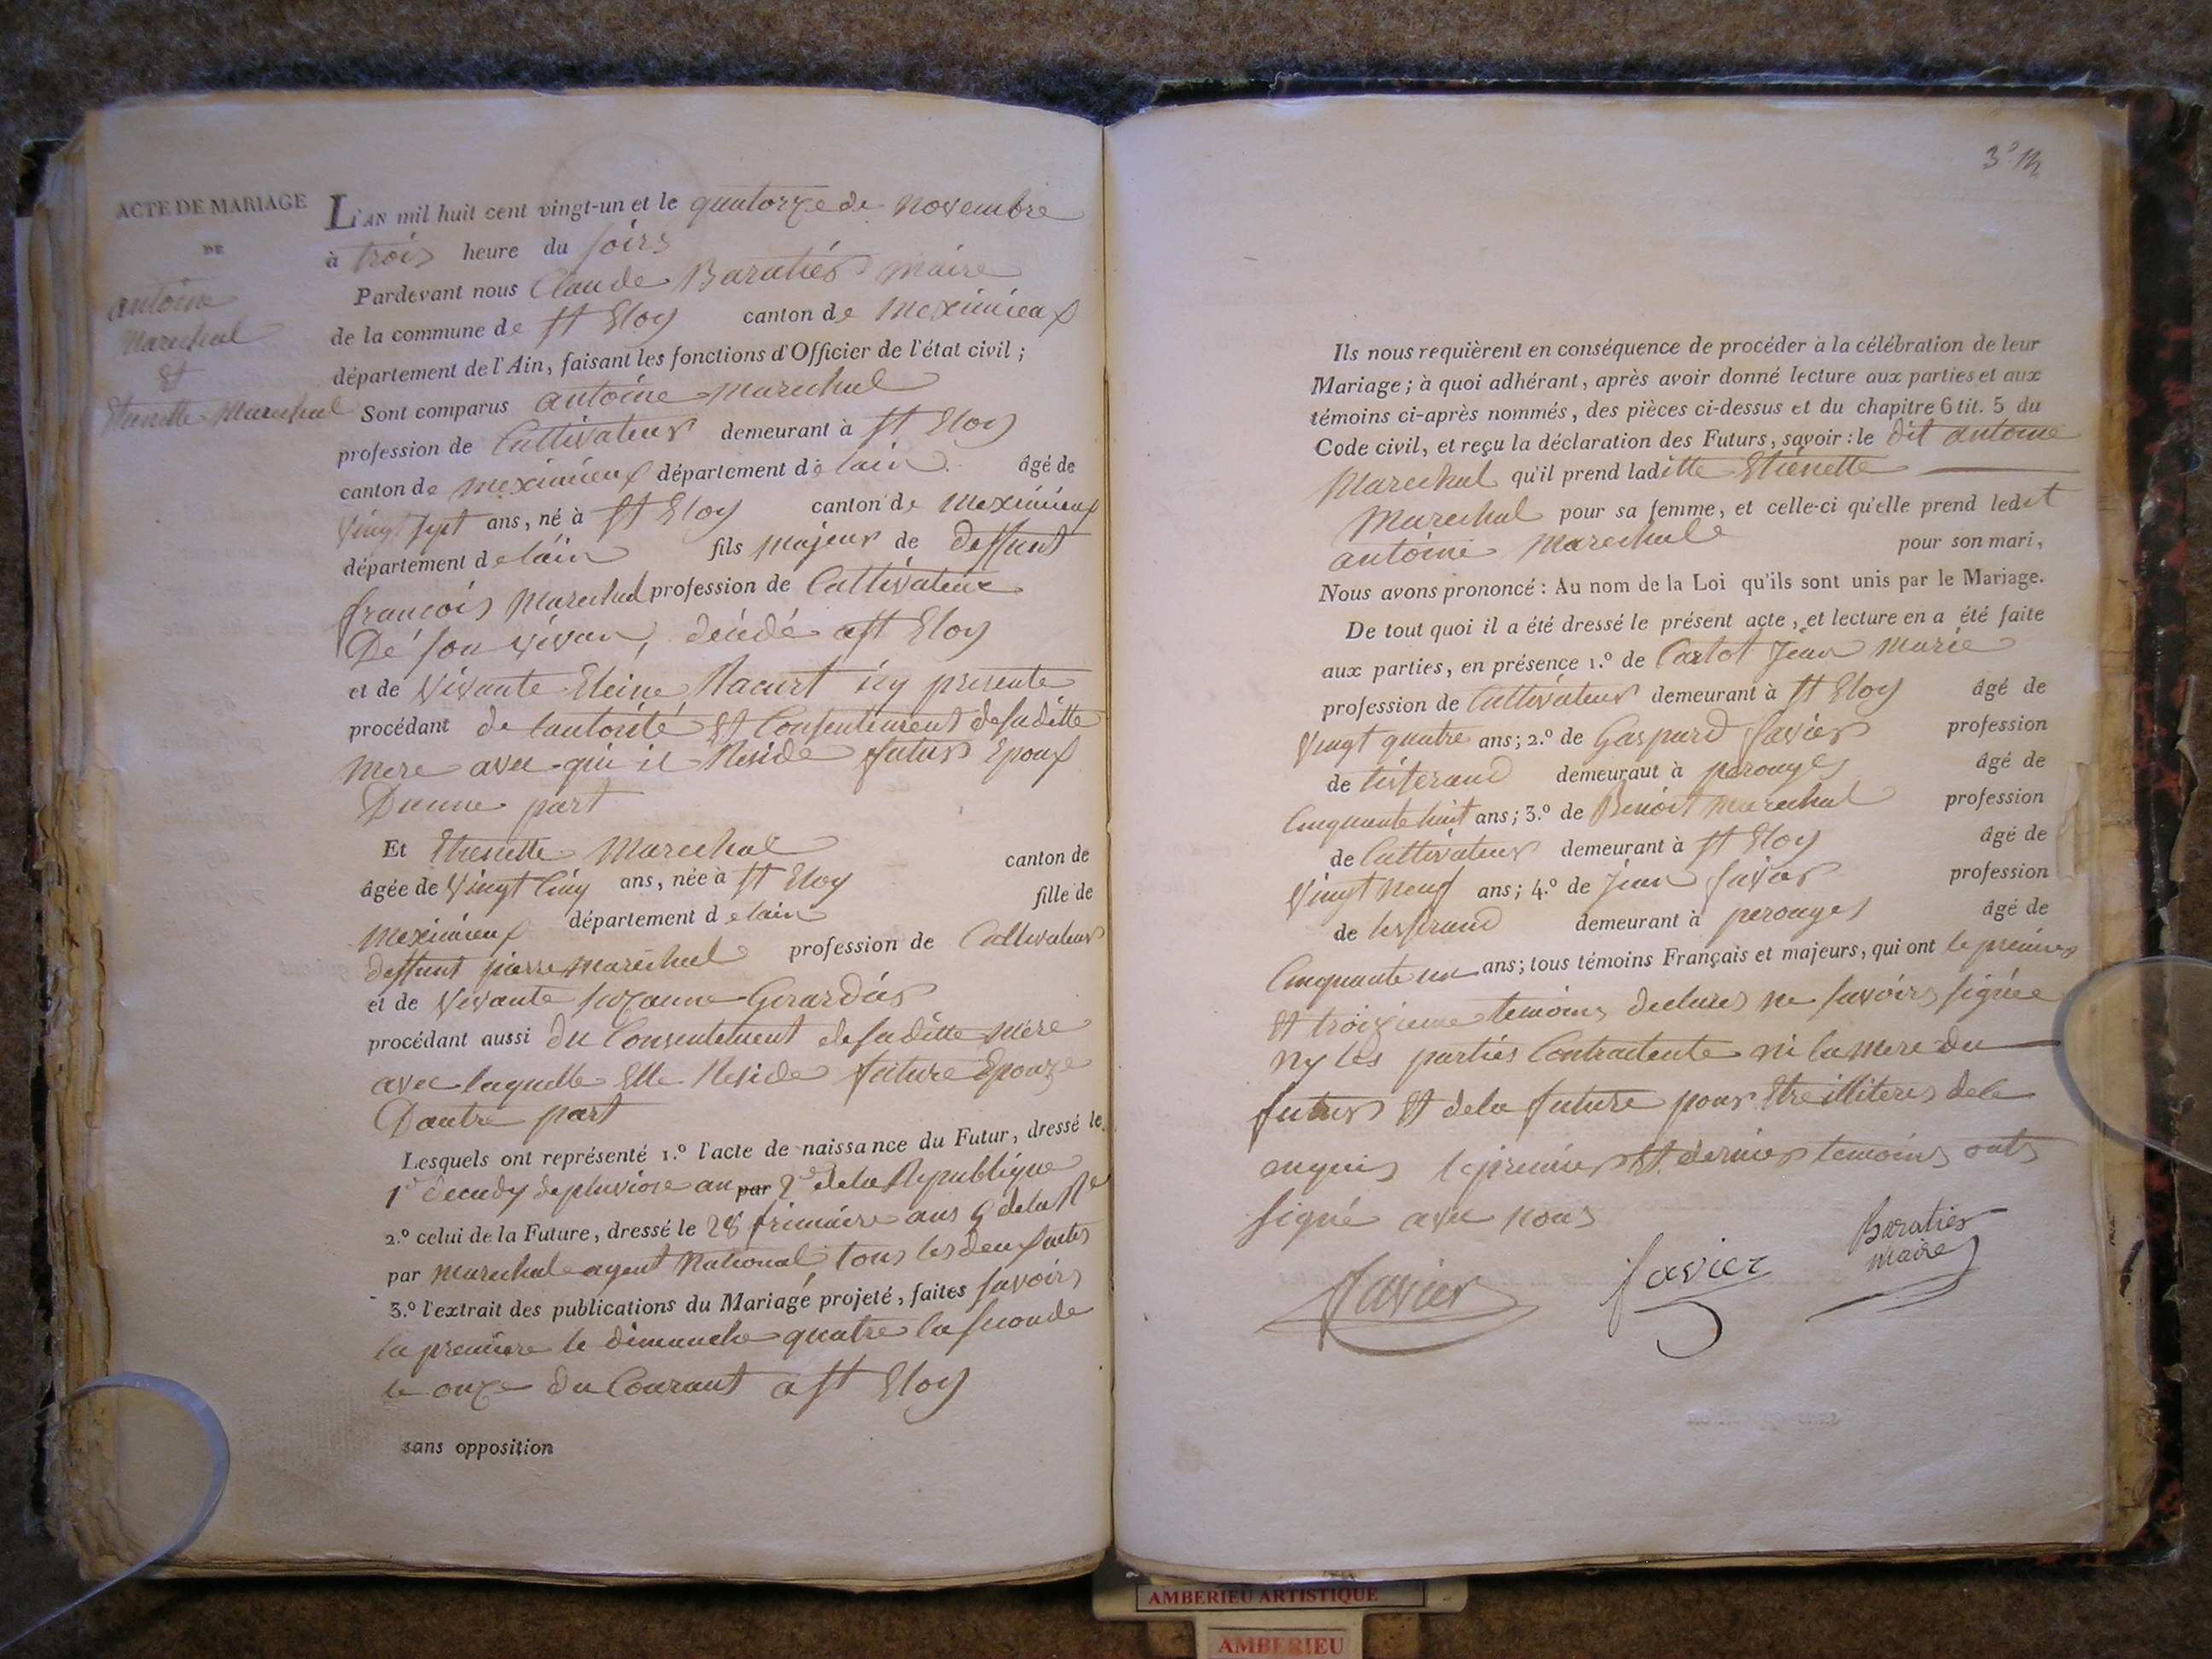 ACTE DE MARIAGE
DE
antoine
Marechal
Et
Etienette Marechal
L'AN mil huit cent vingt-un et le quatorze de novembre
à trois heure du soirs
Pardevant nous Claude Baratier maire
de la commune de st Eloy canton de Meximieux
département de l'Ain, faisant les fonctions d'Officier de l'état civil ;
Sont comparus antoine Marechal
profession de Cultivateur demeurant à st Eloy
canton de meximieux département de lain âgé de
vingt sept ans, né à st Eloy canton de Meximieux
département de lain fils majeur de deffunt
francois Marechal profession de Cultivateur
De son vivan, décédé a st Eloy
et de vivante Racurt icy presente
procédant de lautorité Et Consentement desaditte
mere avec qui il Reside futur Epoux
Dunne part
Et Etienette Marechal
âgée de vingt Cinq ans, née à st Eloy canton de
Meximieux département de lain fille de
deffunt pierre marechal profession de Cultivateur
et de vivante suzanne Girardier
procédant aussi du Consentement desaditte mere
avec laquelle Elle Reside future Epouze
Dautre part
Lesquels ont représenté 1.º l'acte de naissance du Futur, dressé le
1er decady depluviose an par 2e dela Republique
2.º celui de la Future, dressé le 28 frimaire ans dela Re
par marechal agent National tous les deux actes
3.º l'extrait des publications du Mariage projeté, faites savoir
la premiere le dimanche quatre la seconde
le onze du Courant a st Eloy
sans opposition
Ils nous requièrent en conséquence de procéder à la célébration de leur
Mariage ; à quoi adhérant, après avoir donné lecture aux parties et aux
témoins ci-après nommés, des pièces ci-dessus et du chapitre 6 tit. 5 du
Code civil, et reçu la déclaration des Futurs, savoir : le dit antoine
Marechal qu'il prend laditte Etienette
Marechal pour sa femme, et celle-ci qu'elle prend ledit
antoine Marechal pour son mari,
Nous avons prononcé : Au nom de la Loi qu'ils sont unis par le Mariage.
De tout quoi il a été dressé le présent acte, et lecture en a été faite
aux parties, en présence 1.º de Jean Marie
profession de Cultivateur demeurant à st Eloy âgé de
vingt quatre ans ; 2.º de Gaspard Savier profession
de tisserand demeurant à perouges âgé de
Cinquante huit ans ; 3.º de Benoit Marechal profession
de Cultivateur demeurant à st Eloy âgé de
vingt neuf ans ; 4.º de Jean Savier profession
de tesserand demeurant à perouges âgé de
Cinquante un ans ; tous témoins Français et majeurs, qui ont le premier
Et troizieme temoins declarer ne savoirs signée
ny les parties Contractente ni la mere du
futur Et dela future pour Etre illiteres dele
enquis le premier Et dernier temoins onts
signé avec nous
Savier
Savier
Baratier
maire
AMBERIEU ARTISTIQUE
AMBERIEU